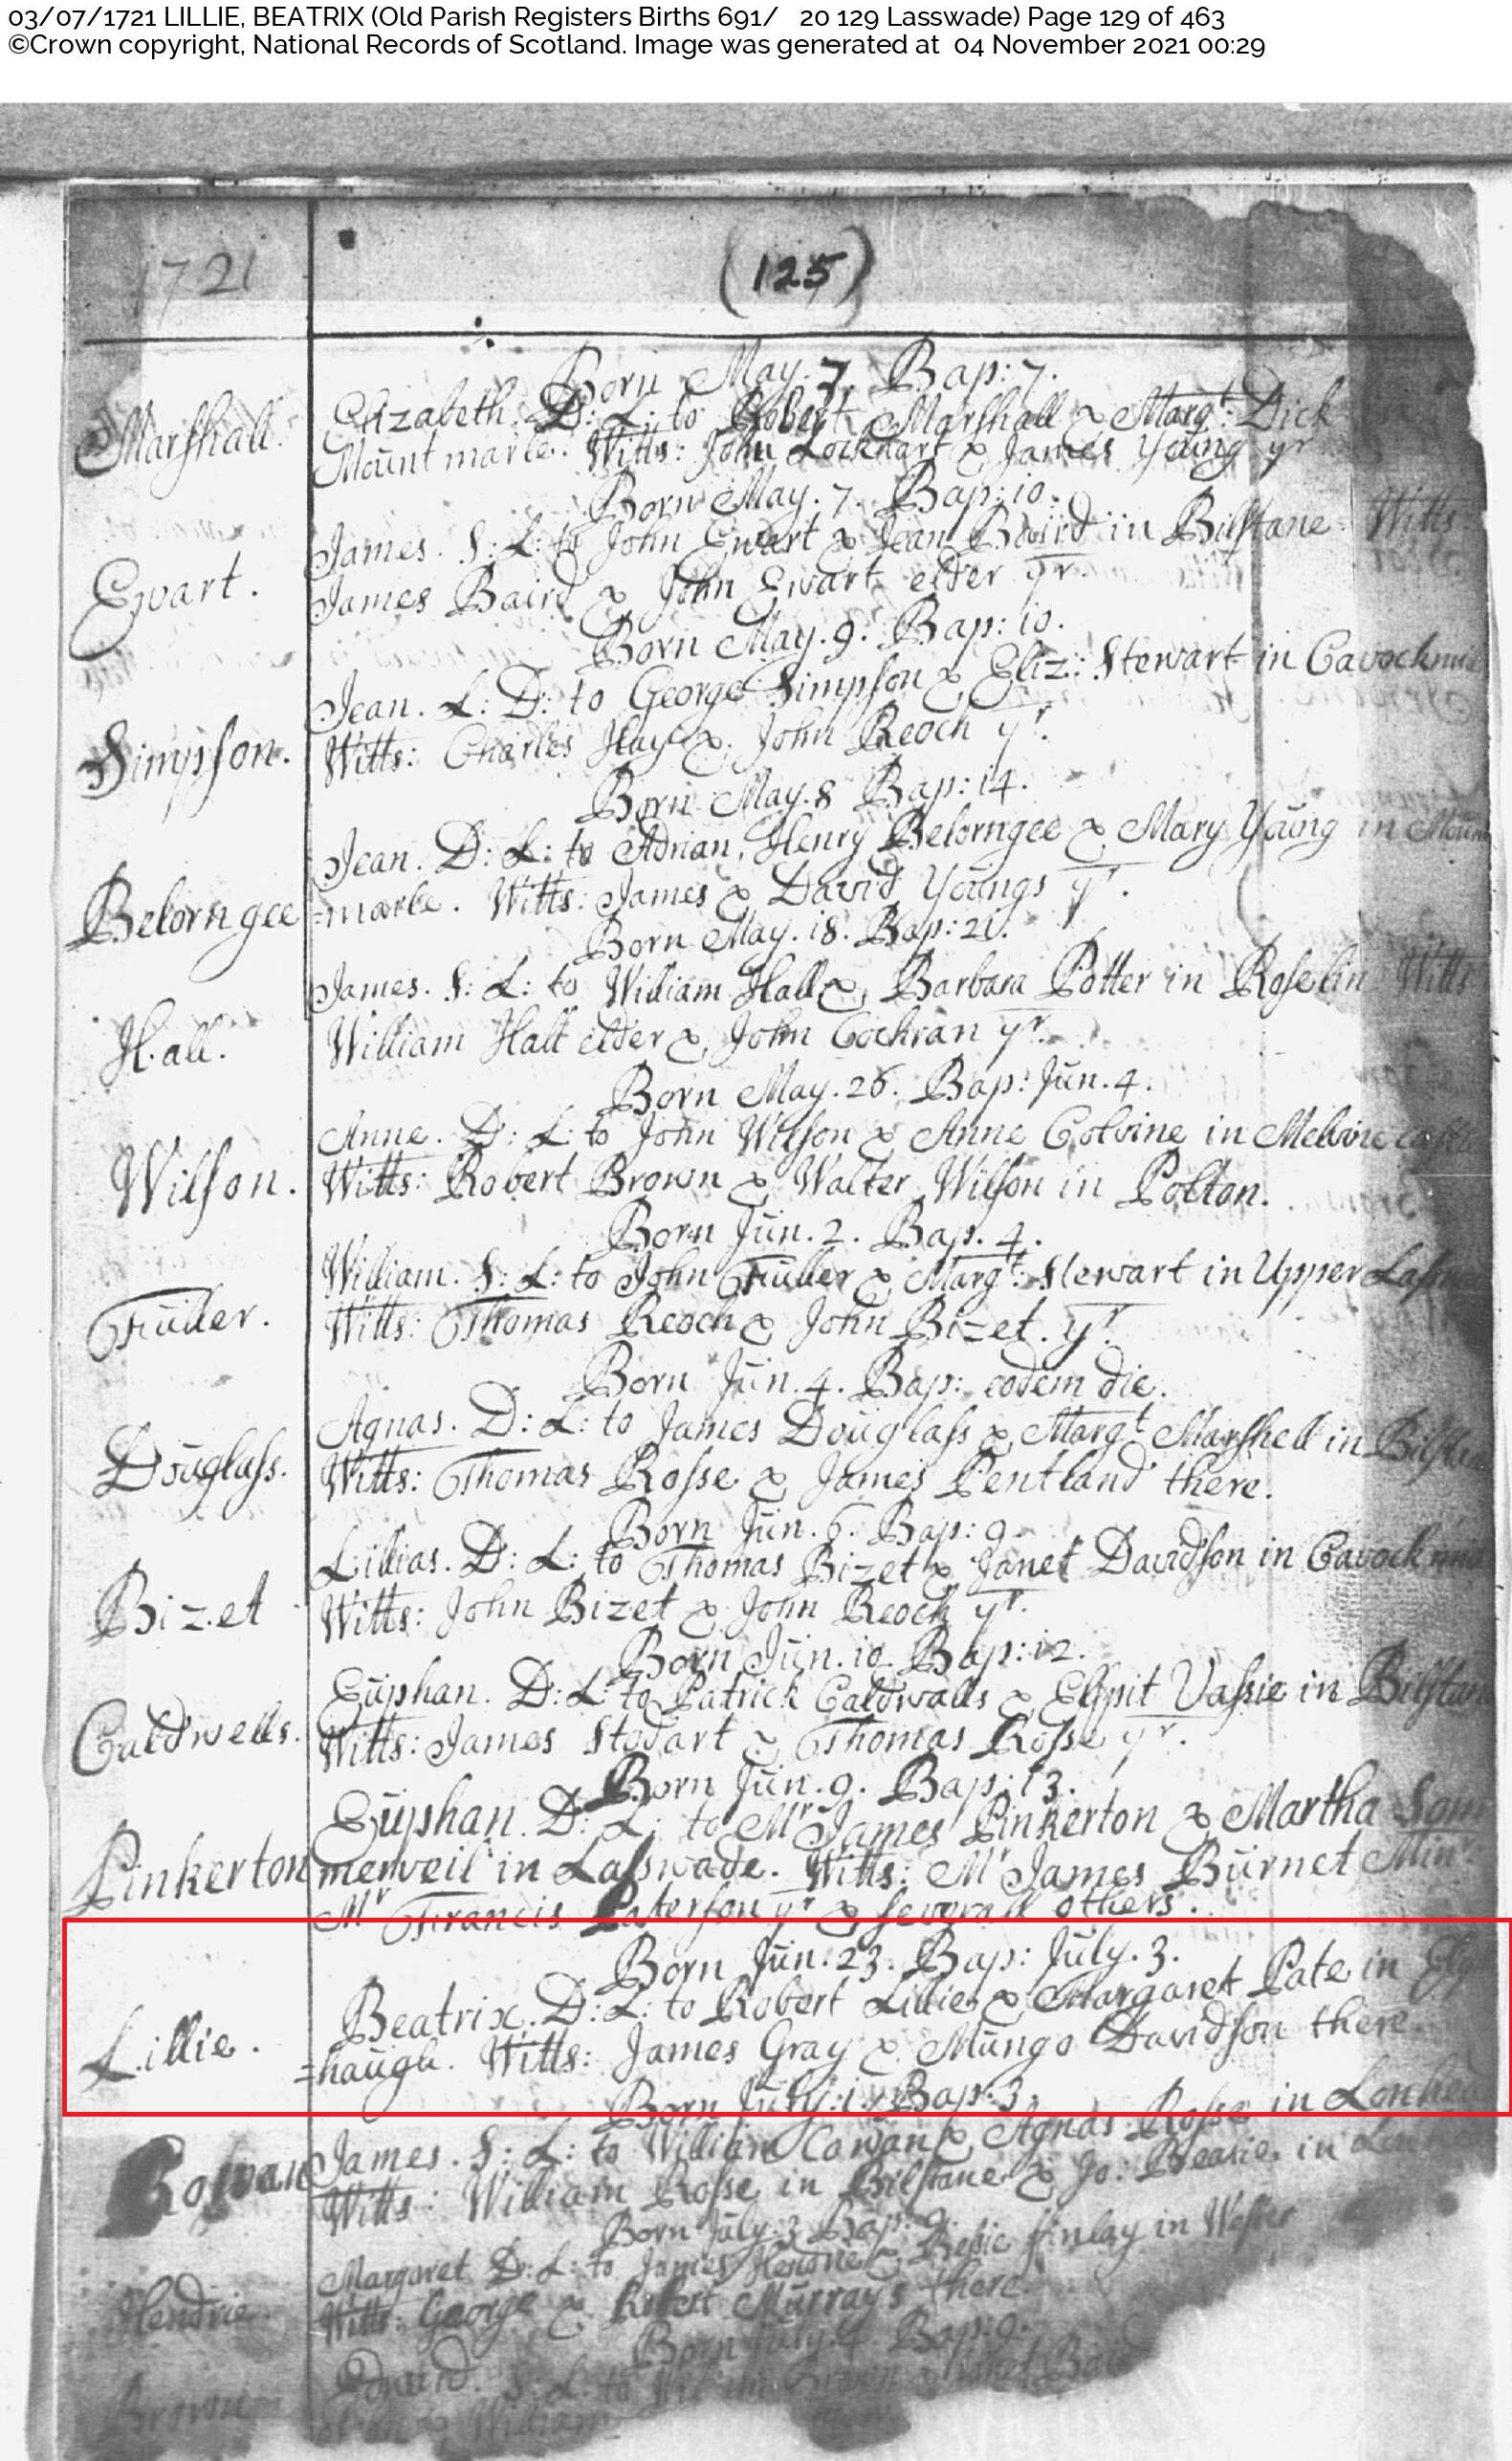 03/07/1721 LILLIE, BEATRIX (Old Parish Registers Births 691/ 20 129 Lasswade) Page 129 of 463
©Crown copyright, National Records of Scotland. Image was generated at 04 November 2021 00:29
1721 (125)
Born May. 7. Bap: 7.
Marshall. Elizabeth. D: L: to Robert Marshall & Margt: Dick
Mount marle. Witts: John Lockhart & James Young yr
Born May. 7. Bap: 10.
James. S: L: to John Ewart & Jean Baird in Bilstane Witts
Ewart. James Baird & John Ewart elder yr.
Born May. 9. Bap: 10.
Jean. L: D: to George Simpson & Eliz: Stewart in
Simpson. Witts: Charles Hay & John Reoch yr.
Born May. 8 Bap: 14.
Jean. D: L: to Adrian Henry Belorngee & Mary Young in Moun
Belorngee =marle. Witts: James & David Youngs yr.
Born May. 18. Bap: 21.
James. S: L: to William Hall & Barbara Potter in Roselin Witts
Hall. William Hall elder & John Cochran yr.
Born May. 26. Bap: Jun. 4.
Anne. D: L: to John Wilson & Anne Colvine in
Wilson. Witts: Robert Brown & Walter Wilson in Polton.
Born Jun. 2. Bap. 4.
William. S: L: to John Fuller & Margt: Stewart in Upper
Fuller. Witts: Thomas Reoch & John Bizet. yr.
Born Jun. 4. Bap: eodem die.
Agnas. D: L: to James Douglass & Margt Marshell in
Douglass. Witts: Thomas Rosse & James Pentland there.
Born Jun. 6. Bap: 9.
Lillias. D: L: to Thomas Bizet & Janet Davidson in
Bizet Witts: John Bizet & John Reoch yr.
Born Jun. 10. Bap: 12.
Euphan. D: L: to Patrick Caldwalls & Elspit Vassie in Bilstan
Caldwells. Witts: James Stodart & Thomas Rosse yr.
Born Jun. 9. Bap: 13.
Euphan. D: L: to Mr James Pinkerton & Martha Som
Pinkerton merveil in Lasswade. Witts: Mr James Burnet Minr
Mr Francis Paterson yr & severall others.
Born Jun. 23. Bap: July. 3.
Beatrix. D: L: to Robert Lillie & Margaret Pate in
Lillie. =haugh. Witts: James Gray & Mungo Davidson there.
Born July. 1. Bap: 3.
James. S: L: to William Cowan & Agnas Rosse in
Cowan Witts: William Rosse in Bilstane & Jo: in
Born July. 3 Bap: 9.
Margaret D: L: to James Hendrie & Bessie finlay in Wester
Hendrie Witts: George & Robert Murrays there.
Born July. Bap: 9.
S: L: to
Brown & William